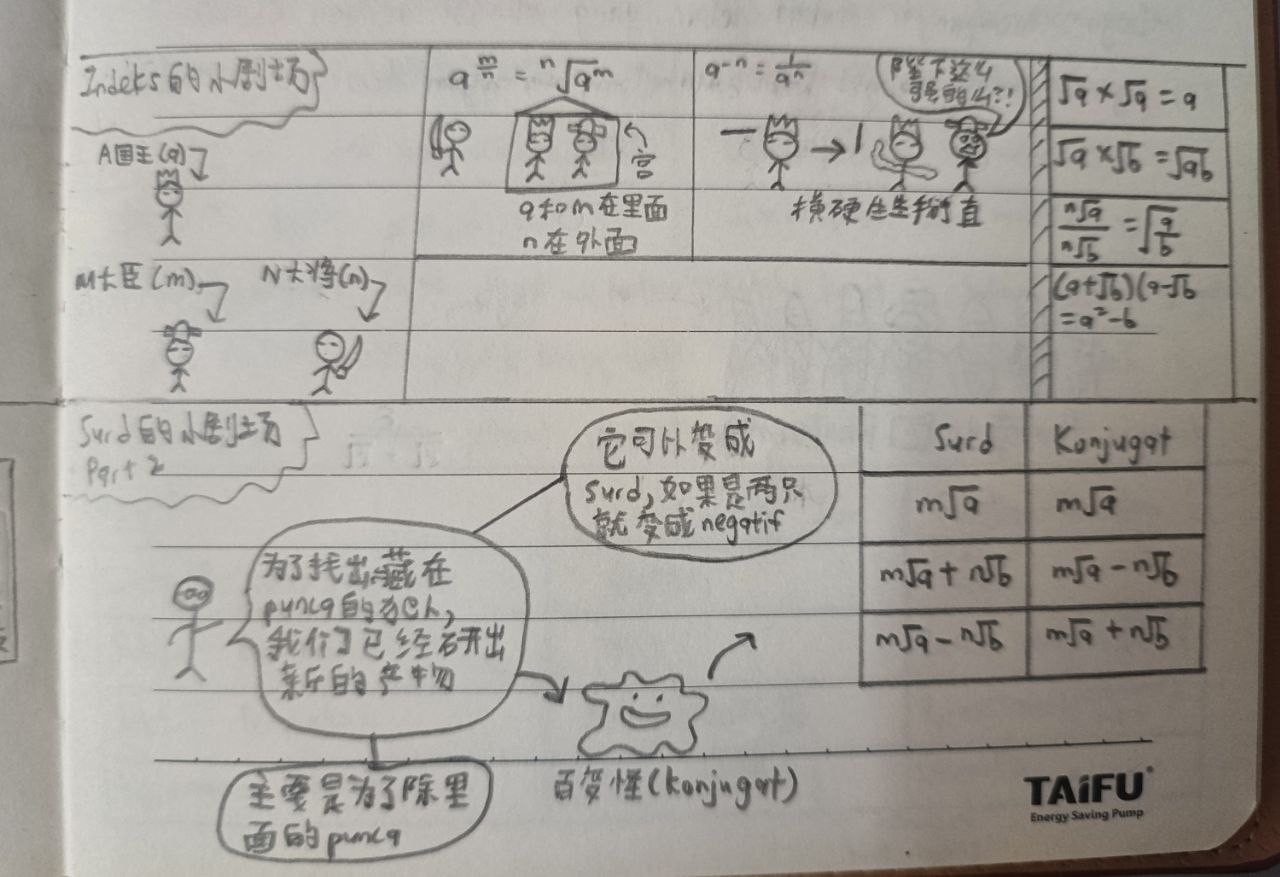 Indeks的小剧场
A国王(a)
M大臣(m)
N大将(n)
a^(m/n) = ⁿ√a^m
宫
a和m在里面
n在外面
a^-n = 1/a^n
陛下这么
1
横硬生生掰直
√a × √a = a
√a × √b = √ab
ⁿ√a / ⁿ√b = √a/b
(a+√b)(a-√b
= a² - b
Surd的小剧场
Part 2
它可以变成
surd, 如果是两只
就变成negatif
为了找出藏在
punca的犯人,
我们已经研出
新的产物
主要是为了除里
面的punca
百变怪(Konjugat)
Surd Konjugat
m√a m√a
m√a + n√b m√a - n√b
m√a - n√b m√a + n√b
TAiFU
Energy Saving Pump